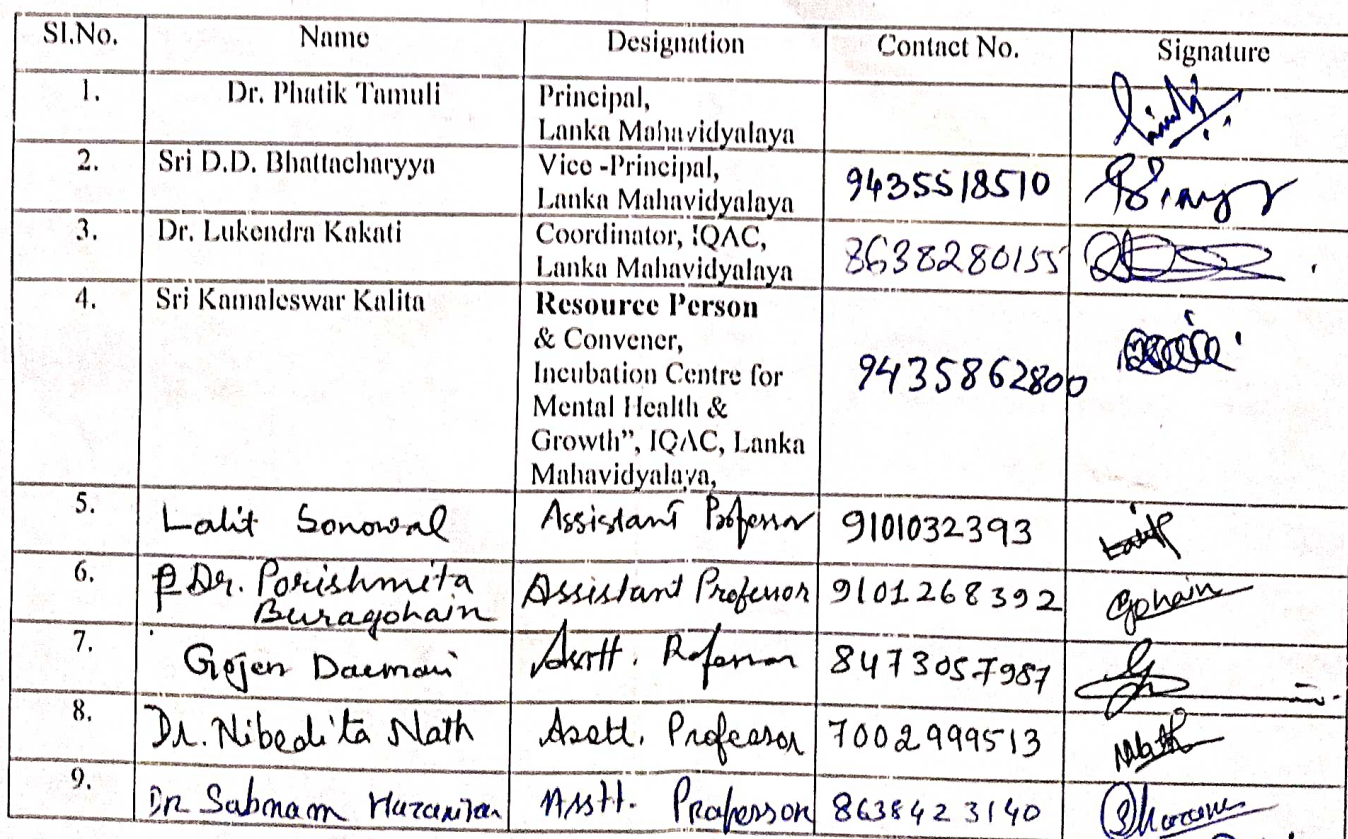 Sl.No. Name Designation Contact No. Signature
1. Dr. Phatik Tamuli Principal,
Lanka Mahavidyalaya
2. Sri D.D. Bhattacharyya Vice -Principal,
Lanka Mahavidyalaya 9435518510
3. Dr. Lukendra Kakati Coordinator, IQAC,
Lanka Mahavidyalaya 8638280155
4. Sri Kamaleswar Kalita Resource Person
& Convener,
Incubation Centre for
Mental Health &
Growth”, IQAC, Lanka
Mahavidyalaya,
9435862800
5. Lalit Sonowal Assistant Professor 9101032393 Lalit
6. Dr. Porishmita
Buragohain Assistant Professor 9101268392 Gohain
7. Gojen Daemari Asstt. Professor 8473057987
8. Dr. Nibedita Nath Asstt. Professor 7002999513 NNath
9. Dr Sabnam Asstt. Professor 8638423140